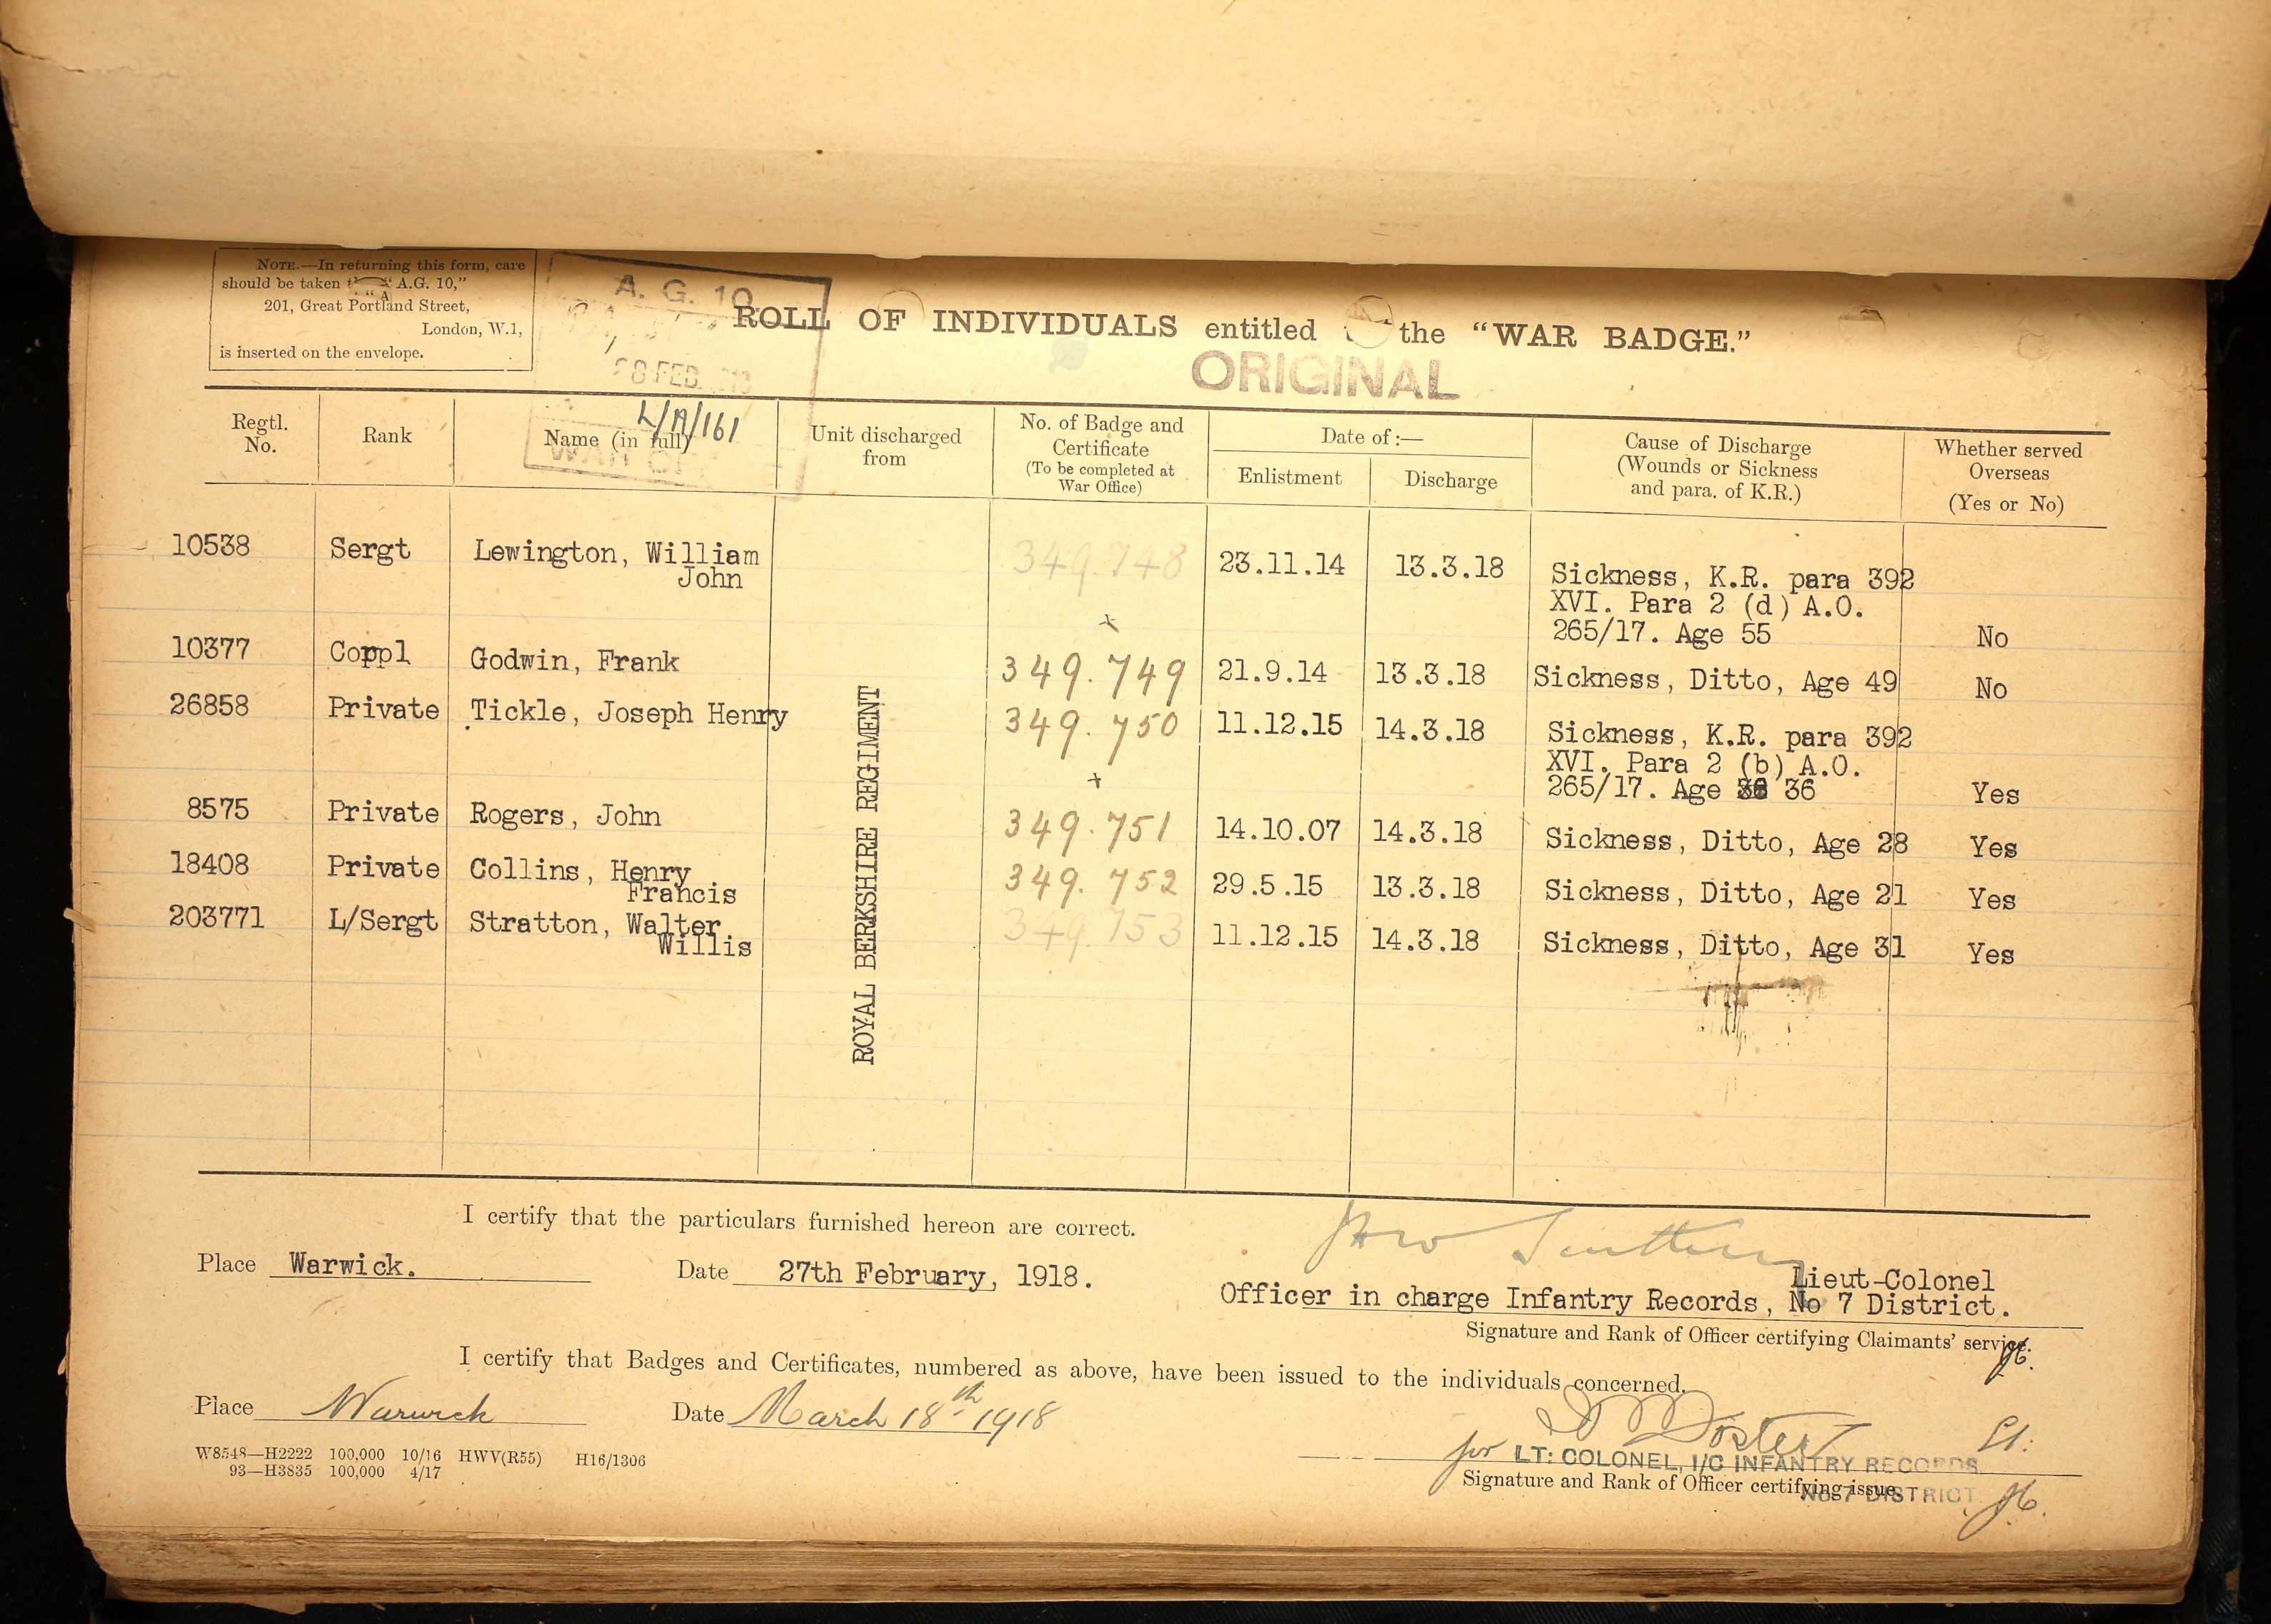 NOTE.—In returning this form, care
should be taken "A.G. 10,"
201, Great Portland Street,
London, W.1,
is inserted on the envelope.
A. G. 10
28 FEB.
L/A/161
ROLL OF INDIVIDUALS entitled the "WAR BADGE."
ORIGINAL
Regtl. No. Rank Name (in full) Unit discharged from No. of Badge and Certificate (To be completed at War Office) Date of:— Enlistment Discharge Cause of Discharge (Wounds or Sickness and para. of K.R.) Whether served Overseas (Yes or No)
10538 Sergt Lewington, William John 349.748 23.11.14 13.3.18 Sickness, K.R. para 392
XVI. Para 2 (d) A.O.
265/17. Age 55 No
10377 Corpl Godwin, Frank 349.749 21.9.14 13.3.18 Sickness, Ditto, Age 49 No
26858 Private Tickle, Joseph Henry 349.750 11.12.15 14.3.18 Sickness, K.R. para 392
XVI. Para 2 (b) A.O.
265/17. Age 36 Yes
8575 Private Rogers, John 349.751 14.10.07 14.3.18 Sickness, Ditto, Age 28 Yes
18408 Private Collins, Henry Francis 349.752 29.5.15 13.3.18 Sickness, Ditto, Age 21 Yes
203771 L/Sergt Stratton, Walter Willis 349.753 11.12.15 14.3.18 Sickness, Ditto, Age 31 Yes
ROYAL BERKSHIRE REGIMENT
I certify that the particulars furnished hereon are correct.
Place Warwick. Date 27th February, 1918.
Lieut-Colonel
Officer in charge Infantry Records, No 7 District.
Signature and Rank of Officer certifying Claimants' service.
I certify that Badges and Certificates, numbered as above, have been issued to the individuals concerned.
Place Warwick Date March 18th 1918
Lt.
for LT: COLONEL, I/C INFANTRY RECORDS
No. 7 DISTRICT
Signature and Rank of Officer certifying issue
W8548—H2222 100,000 10/16 HWV(R55) H16/1306
93—H3835 100,000 4/17